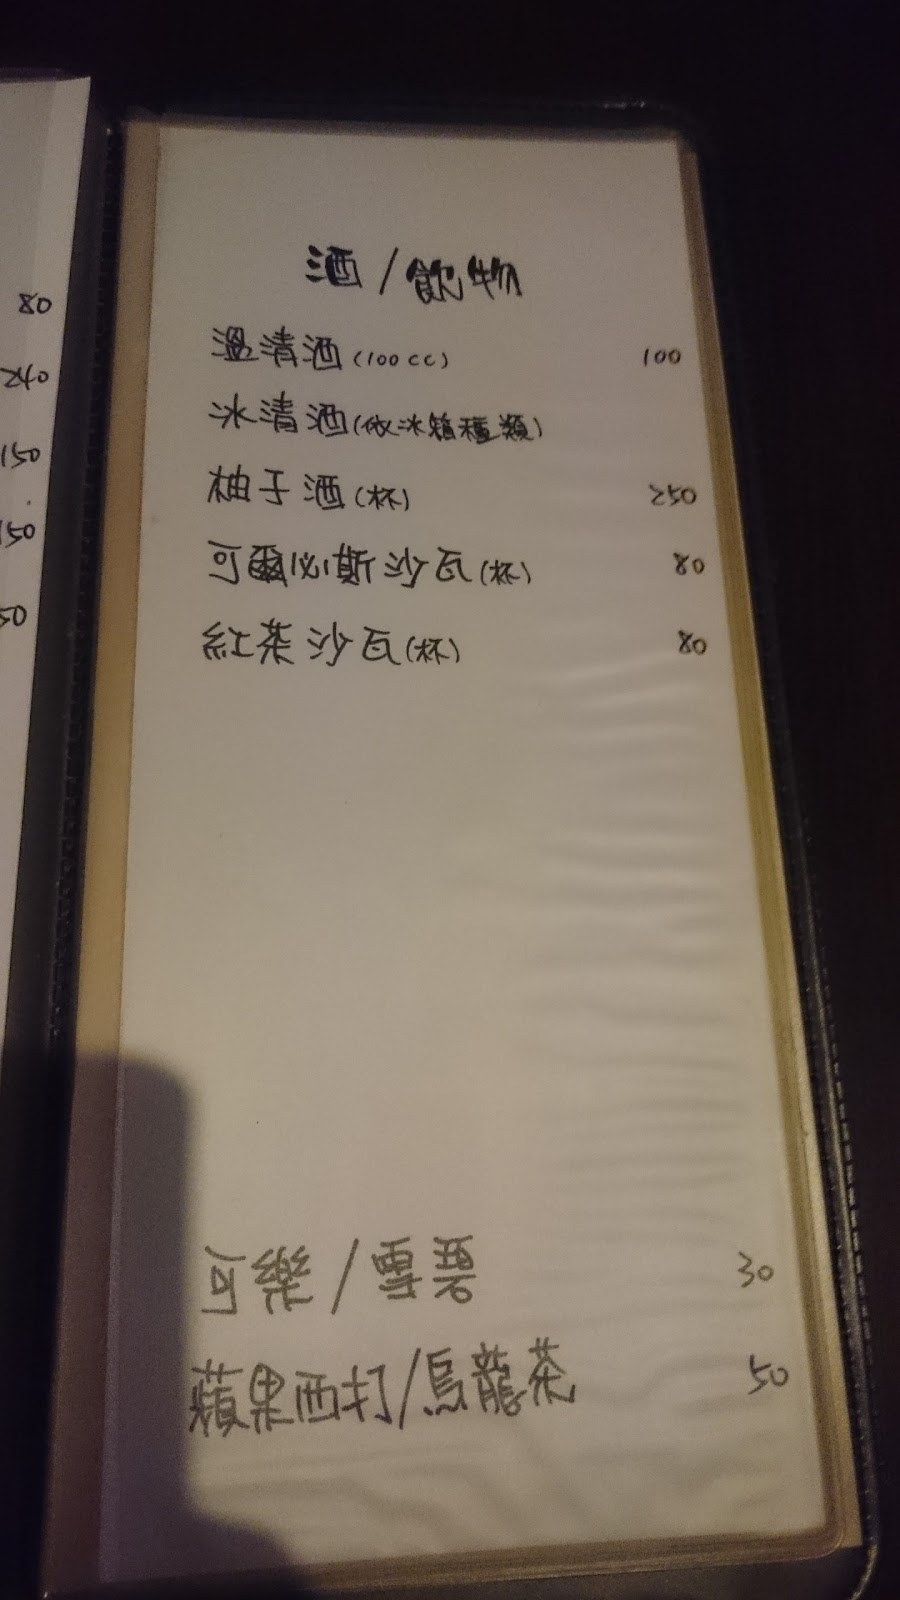 80
240
150
150
50
酒/飲物
溫清酒(100cc) 100
冰清酒(依冰箱種類)
柚子酒(杯) 250
可爾必斯沙瓦(杯) 80
紅茶沙瓦(杯) 80
可樂/雪碧 30
蘋果西打/烏龍茶 50